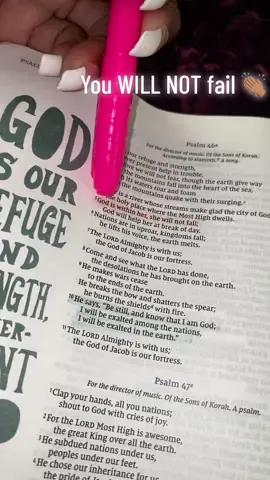 You WILL NOT fail 👏🏽
PSALM
GOD
IS OUR
REFUGE
AND
Psalm 46
For the director of music. Of the Sons of Korah.
According to alamoth. A song.
our refuge and strength,
ever present help in trouble.
we will not fear, though the earth give way
mountains fall into the heart of the sea,
waters roar and foam
the mountains quake with their surging.
is a river whose streams make glad the city of God,
holy place where the Most High dwells.
God is within her, she will not fall;
God will help her at break of day.
Nations are in uproar, kingdoms fall;
he lifts his voice, the earth melts.
7 The LORD Almighty is with us;
the God of Jacob is our fortress.
8 Come and see what the LORD has done,
the desolations he has brought on the earth.
9 He makes wars cease
to the ends of the earth.
He breaks the bow and shatters the spear;
he burns the shields with fire.
10 He says, "Be still, and know that I am God;
I will be exalted among the nations,
I will be exalted in the earth."
11 The LORD Almighty is with us;
the God of Jacob is our fortress.
Psalm 47
For the director of music. Of the Sons of Korah. A psalm.
1 Clap your hands, all you nations;
shout to God with cries of joy.
2 For the LORD Most High is awesome,
the great King over all the earth.
3 He subdued nations under us,
peoples under our feet.
4 He chose our inheritance for us,
the pride of Jacob,